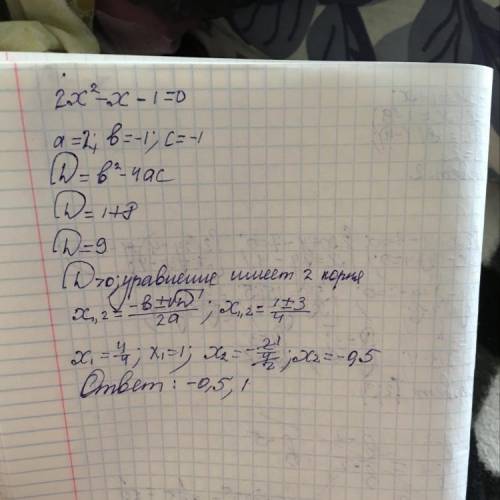 2x²-x-1=0
a=2; b=-1; c=-1
D=b²-4ac
D=1+8
D=9
D>0; уравнение имеет 2 корня
x₁,₂=(-b±√D)/2a; x₁,₂=(1±3)/4
x₁=4/4; x₁=1; x₂=-2/4 1/2; x₂=-0,5
Ответ: -0,5; 1